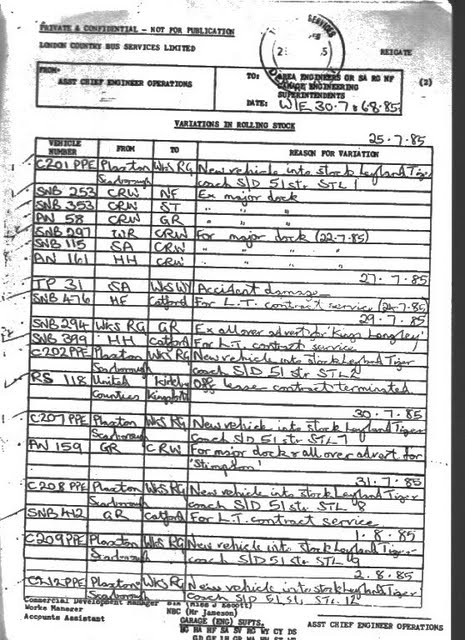 PRIVATE & CONFIDENTIAL - NOT FOR PUBLICATION
LONDON COUNTRY BUS SERVICES LIMITED
REIGATE
FROM- ASST CHIEF ENGINEER OPERATIONS
TO: AREA ENGINEERS GR SA RG NF
GARAGE ENGINEERING
SUPERINTENDENTS
(3)
DATE: W/E 30.7 & 6.8.85
VARIATIONS IN ROLLING STOCK
25.7.85
VEHICLE NUMBER FROM TO REASON FOR VARIATION
C201 PPE Plaxton WKS RG New vehicle into stock Leyland Tiger
Scarborough coach S/D 51 str STL 1
SNB 253 CRW NF Ex major dock
SNB 353 CRW ST " " "
AN 58 CRW GR " " "
SNB 297 WR CRW For major dock (22-7.85)
SNB 115 SA CRW " " "
AN 161 HH CRW " " "
27.7.85
TP 31 SA WKS WY Accident damage
SNB 476 HF Catford For L.T. contract service (24-7-85)
29.7.85
SNB 294 WKS RG GR Ex allover advert for 'Kings Langley'
SNB 399 HH Catford For L.T. contract service
C202 PPE Plaxton WKS RG New vehicle into stock Leyland Tiger
Scarborough coach S/D 51 str STL 2
RS 118 United Kirkby Off lease contract terminated
Counties
30.7.85
C207 PPE Plaxton WKS RG New vehicle into stock Leyland Tiger
Scarborough coach S/D 51 str STL 7
AN 159 GR CRW For major dock & allover advert for
'Stimpson'
31.7.85
C208 PPE Plaxton WKS RG New vehicle into stock Leyland Tiger
Scarborough coach S/D 51 str STL 8
SNB 442 GR Catford For L.T. contract service
1.8.85
C209 PPE Plaxton WKS RG New vehicle into stock Leyland Tiger
Scarborough coach S/D 51 str STL 9
2.8.85
C212 PPE Plaxton WKS RG New vehicle into stock Leyland Tiger
Scarborough coach S/D 51 str STL 12
Commercial Development Manager
Works Manager NBC (Mr Jameson)
Accounts Assistant GARAGE (ENG) SUPTS.
ASST CHIEF ENGINEER OPERATIONS